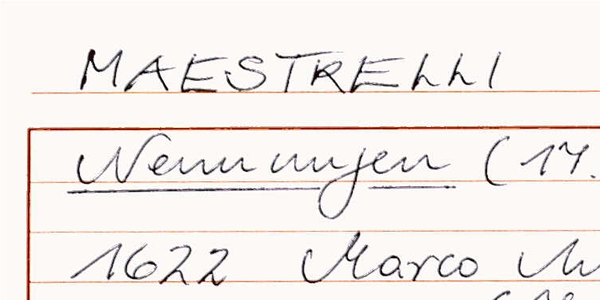 MAESTRELLI
Nennungen (17.
1622 Marco